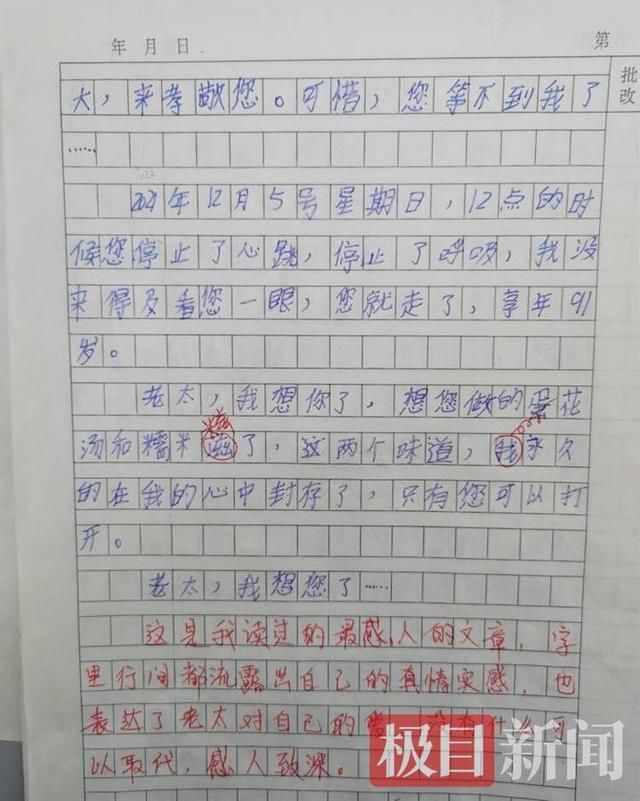 年 月 日
第
批改
大，来孝敬您。可惜，您等不到我了
……
2021年12月5号星期日，12点的时
候您停止了心跳，停止了呼吸，我没
来得及看您一眼，您就走了，享年91
岁。
老太，我想你了，想您做的蛋花
糍
汤和糯米滋了，这两个味道，我永久
的在我的心中封存了，只有您可以打
开。
老太，我想您了……
这是我读过的最感人的文章，字
里行间都流露出自己的真情实感，也
表达了老太对自己的爱，没有什么可
以取代，感人致深。
极目新闻